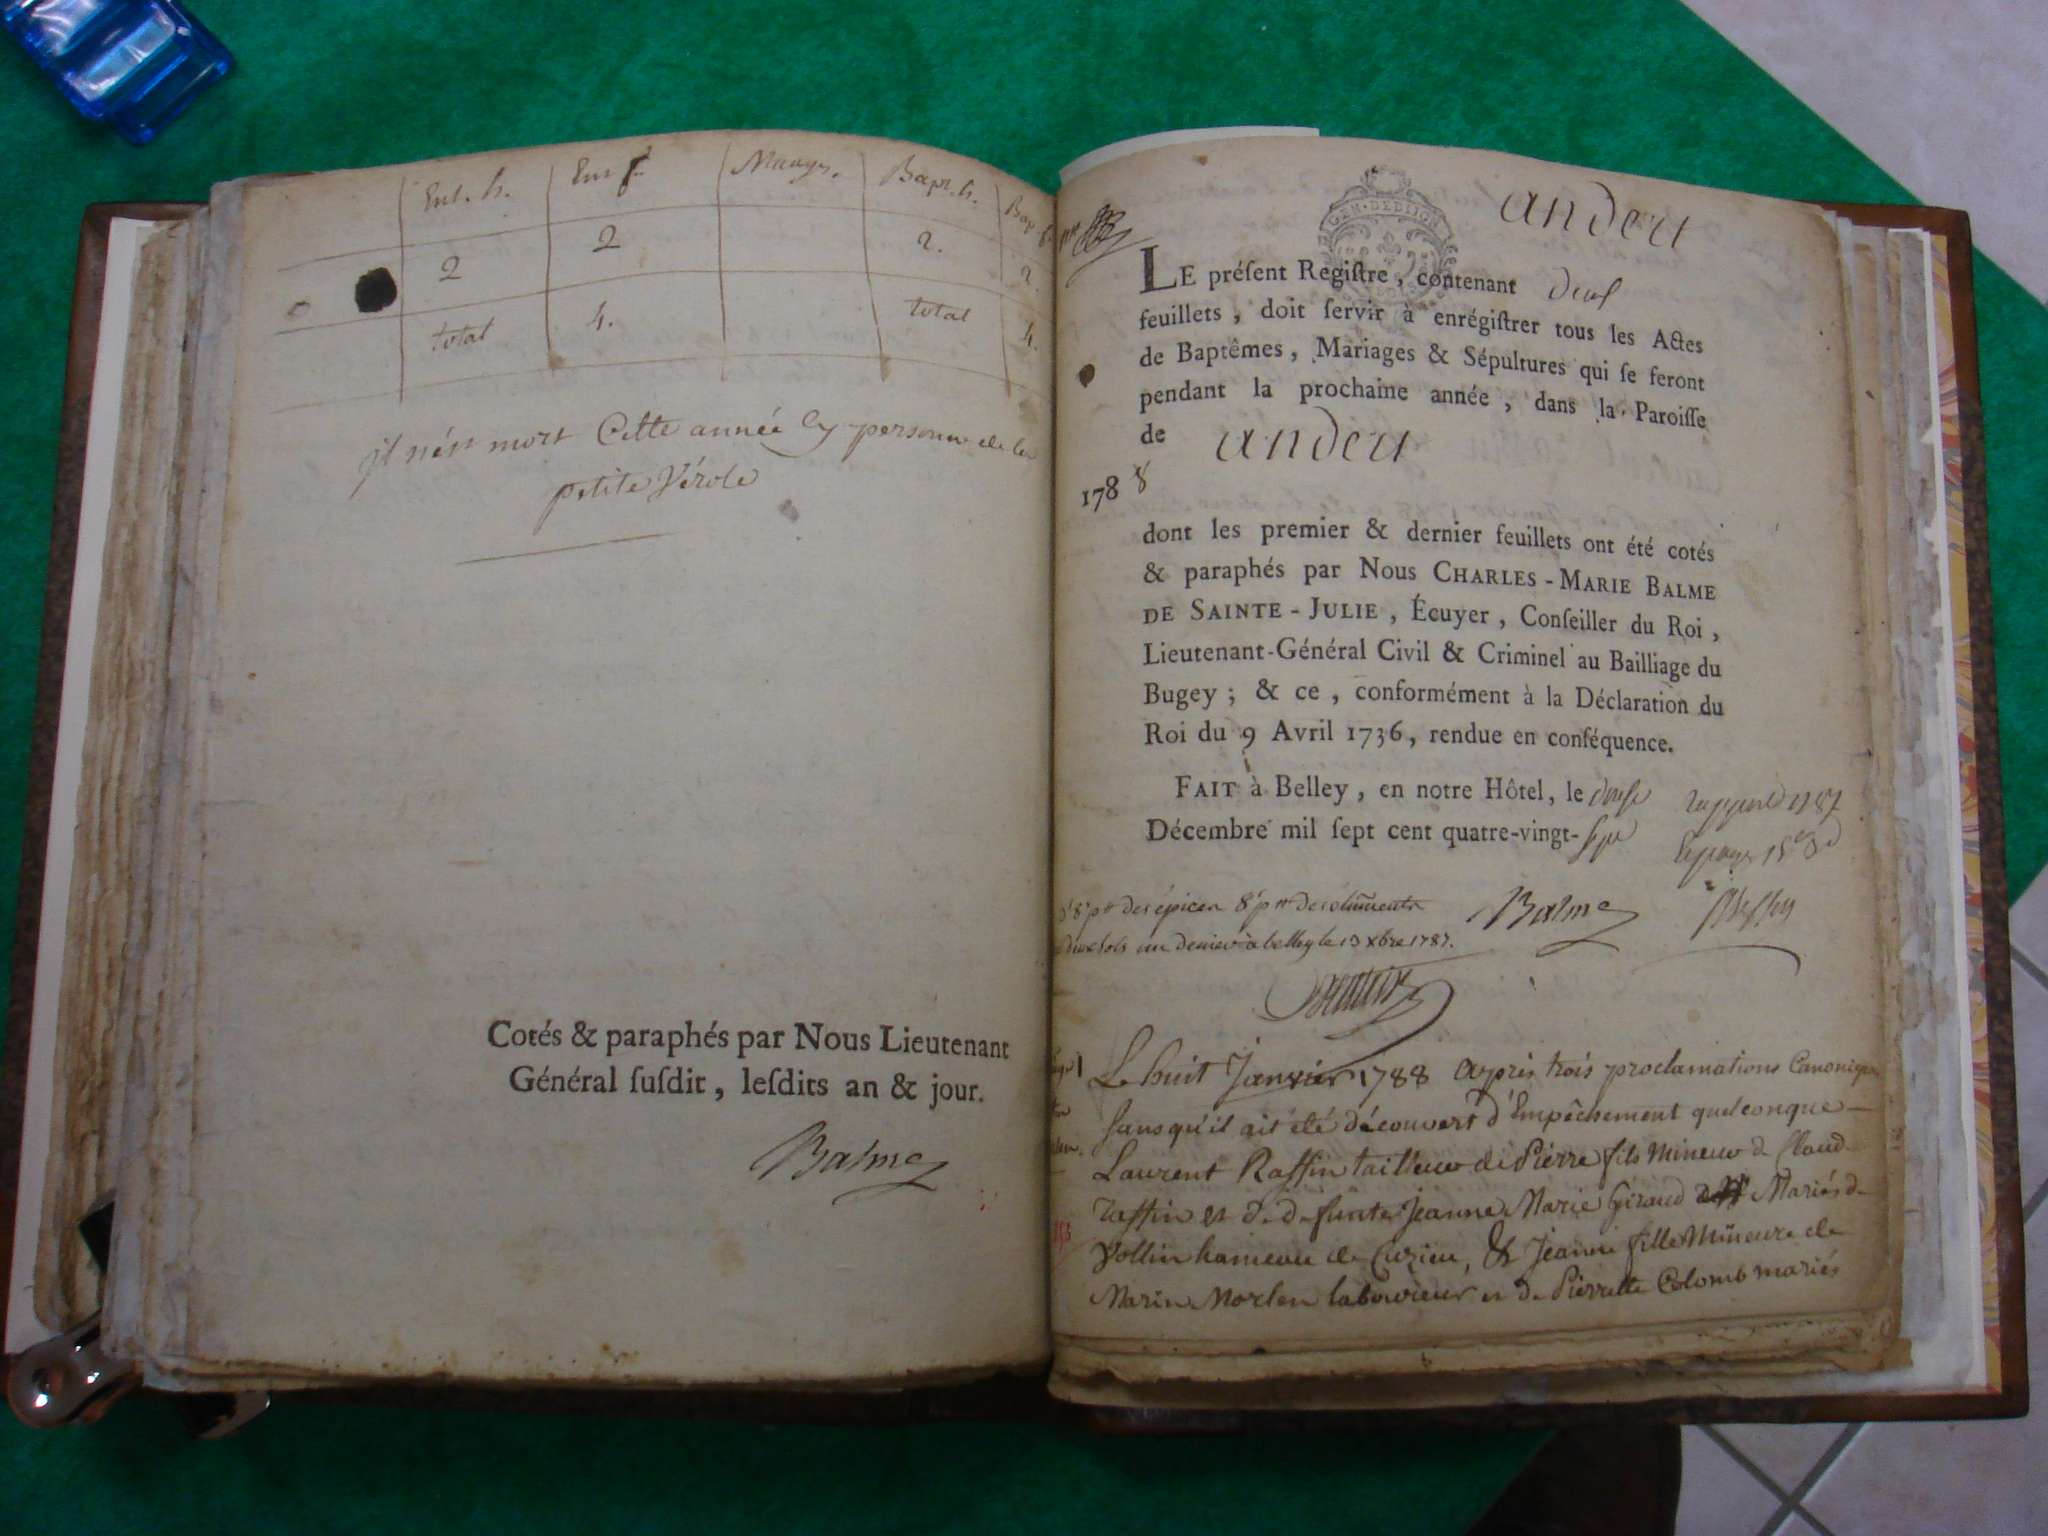 Ent. h. Ent f. Mariages. Bapt. h. Bap. f.
2 2 2. 2.
total 4. total 4.
il n'est mort Cette année Cy personne de la
petite Vérole
Cotés & paraphés par Nous Lieutenant
Général ſuſdit, leſdits an & jour.
Balme
andert
GEN. DE DIJON
LE préſent Regiſtre, contenant deux
feuillets, doit ſervir à enrégiſtrer tous les Actes
de Baptêmes, Mariages & Sépultures qui ſe feront
pendant la prochaine année, dans la Paroiſſe
de andert
1788
dont les premier & dernier feuillets ont été cotés
& paraphés par Nous CHARLES-MARIE BALME
DE SAINTE-JULIE, Écuyer, Conſeiller du Roi,
Lieutenant-Général Civil & Criminel au Bailliage du
Bugey; & ce, conformément à la Déclaration du
Roi du 9 Avril 1736, rendue en conſéquence.
FAIT à Belley, en notre Hôtel, le douse
Décembre mil ſept cent quatre-vingt-sept
Balme
des épices 8 pr des
un denier à belley le 13 xbre 1787.
Le huit Janvier 1788 après trois proclamations Canoniques
sans qu'il ait été découvert d'Empêchement quelconque
Laurent Raffin tailleur de Pierre fils Mineur de Claude
raffin et de defunte Jeanne Marie Giraud Mariés de
Vollin hameau de Cuzieu, & Jeanne fille Mineure de
Marin laboureur et de Pierrette Colomb mariés